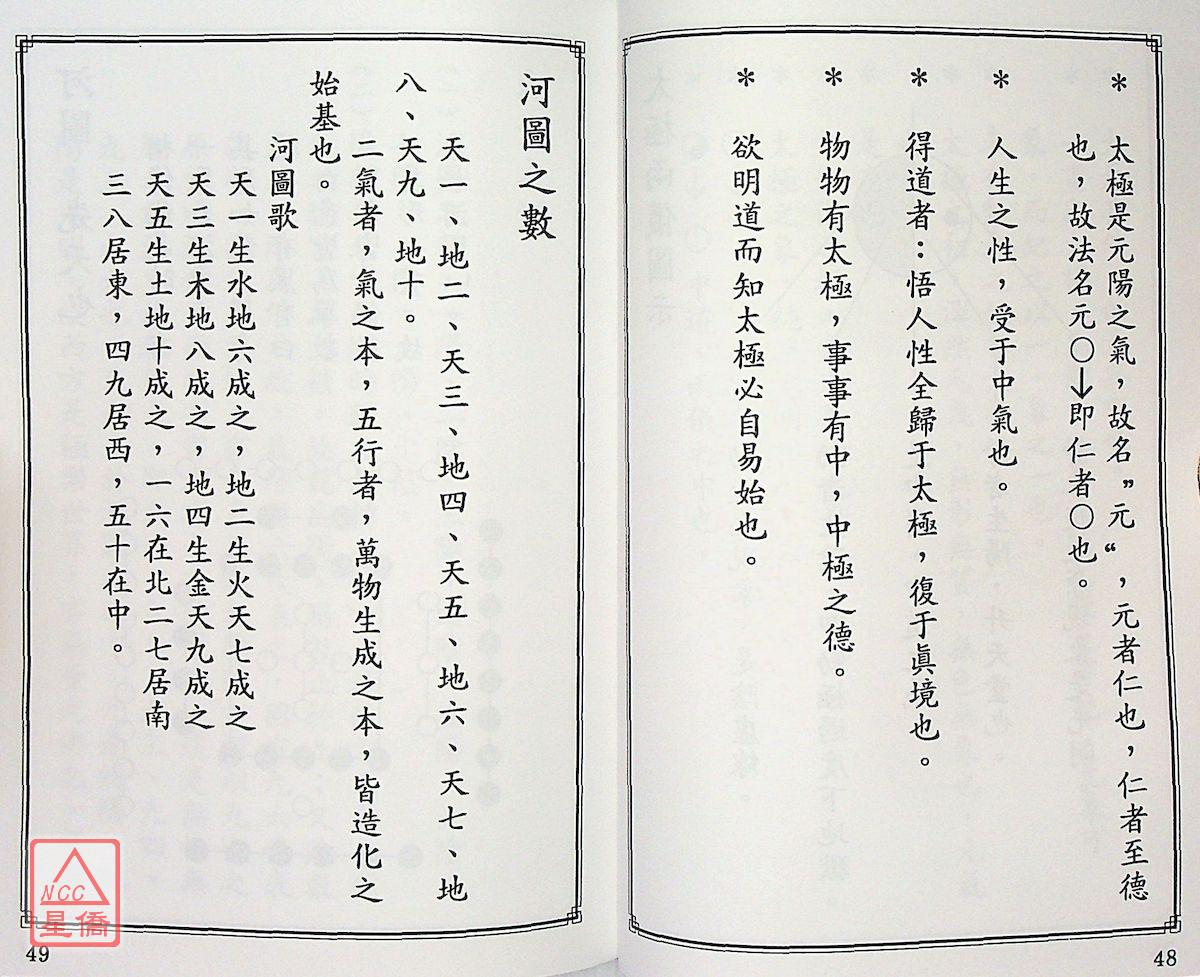 * 太極是元陽之氣，故名”元“，元者仁也，仁者至德
也，故法名元〇↓即仁者〇也。
* 人生之性，受于中氣也。
* 得道者：悟人性全歸于太極，復于眞境也。
* 物物有太極，事事有中，中極之德。
* 欲明道而知太極必自易始也。
48
河圖之數
天一、地二、天三、地四、天五、地六、天七、地
八、天九、地十。
二氣者，氣之本，五行者，萬物生成之本，皆造化之
始基也。
河圖歌
天一生水地六成之，地二生火天七成之
天三生木地八成之，地四生金天九成之
天五生土地十成之，一六在北二七居南
三八居東，四九居西，五十在中。
49
NCC
星僑